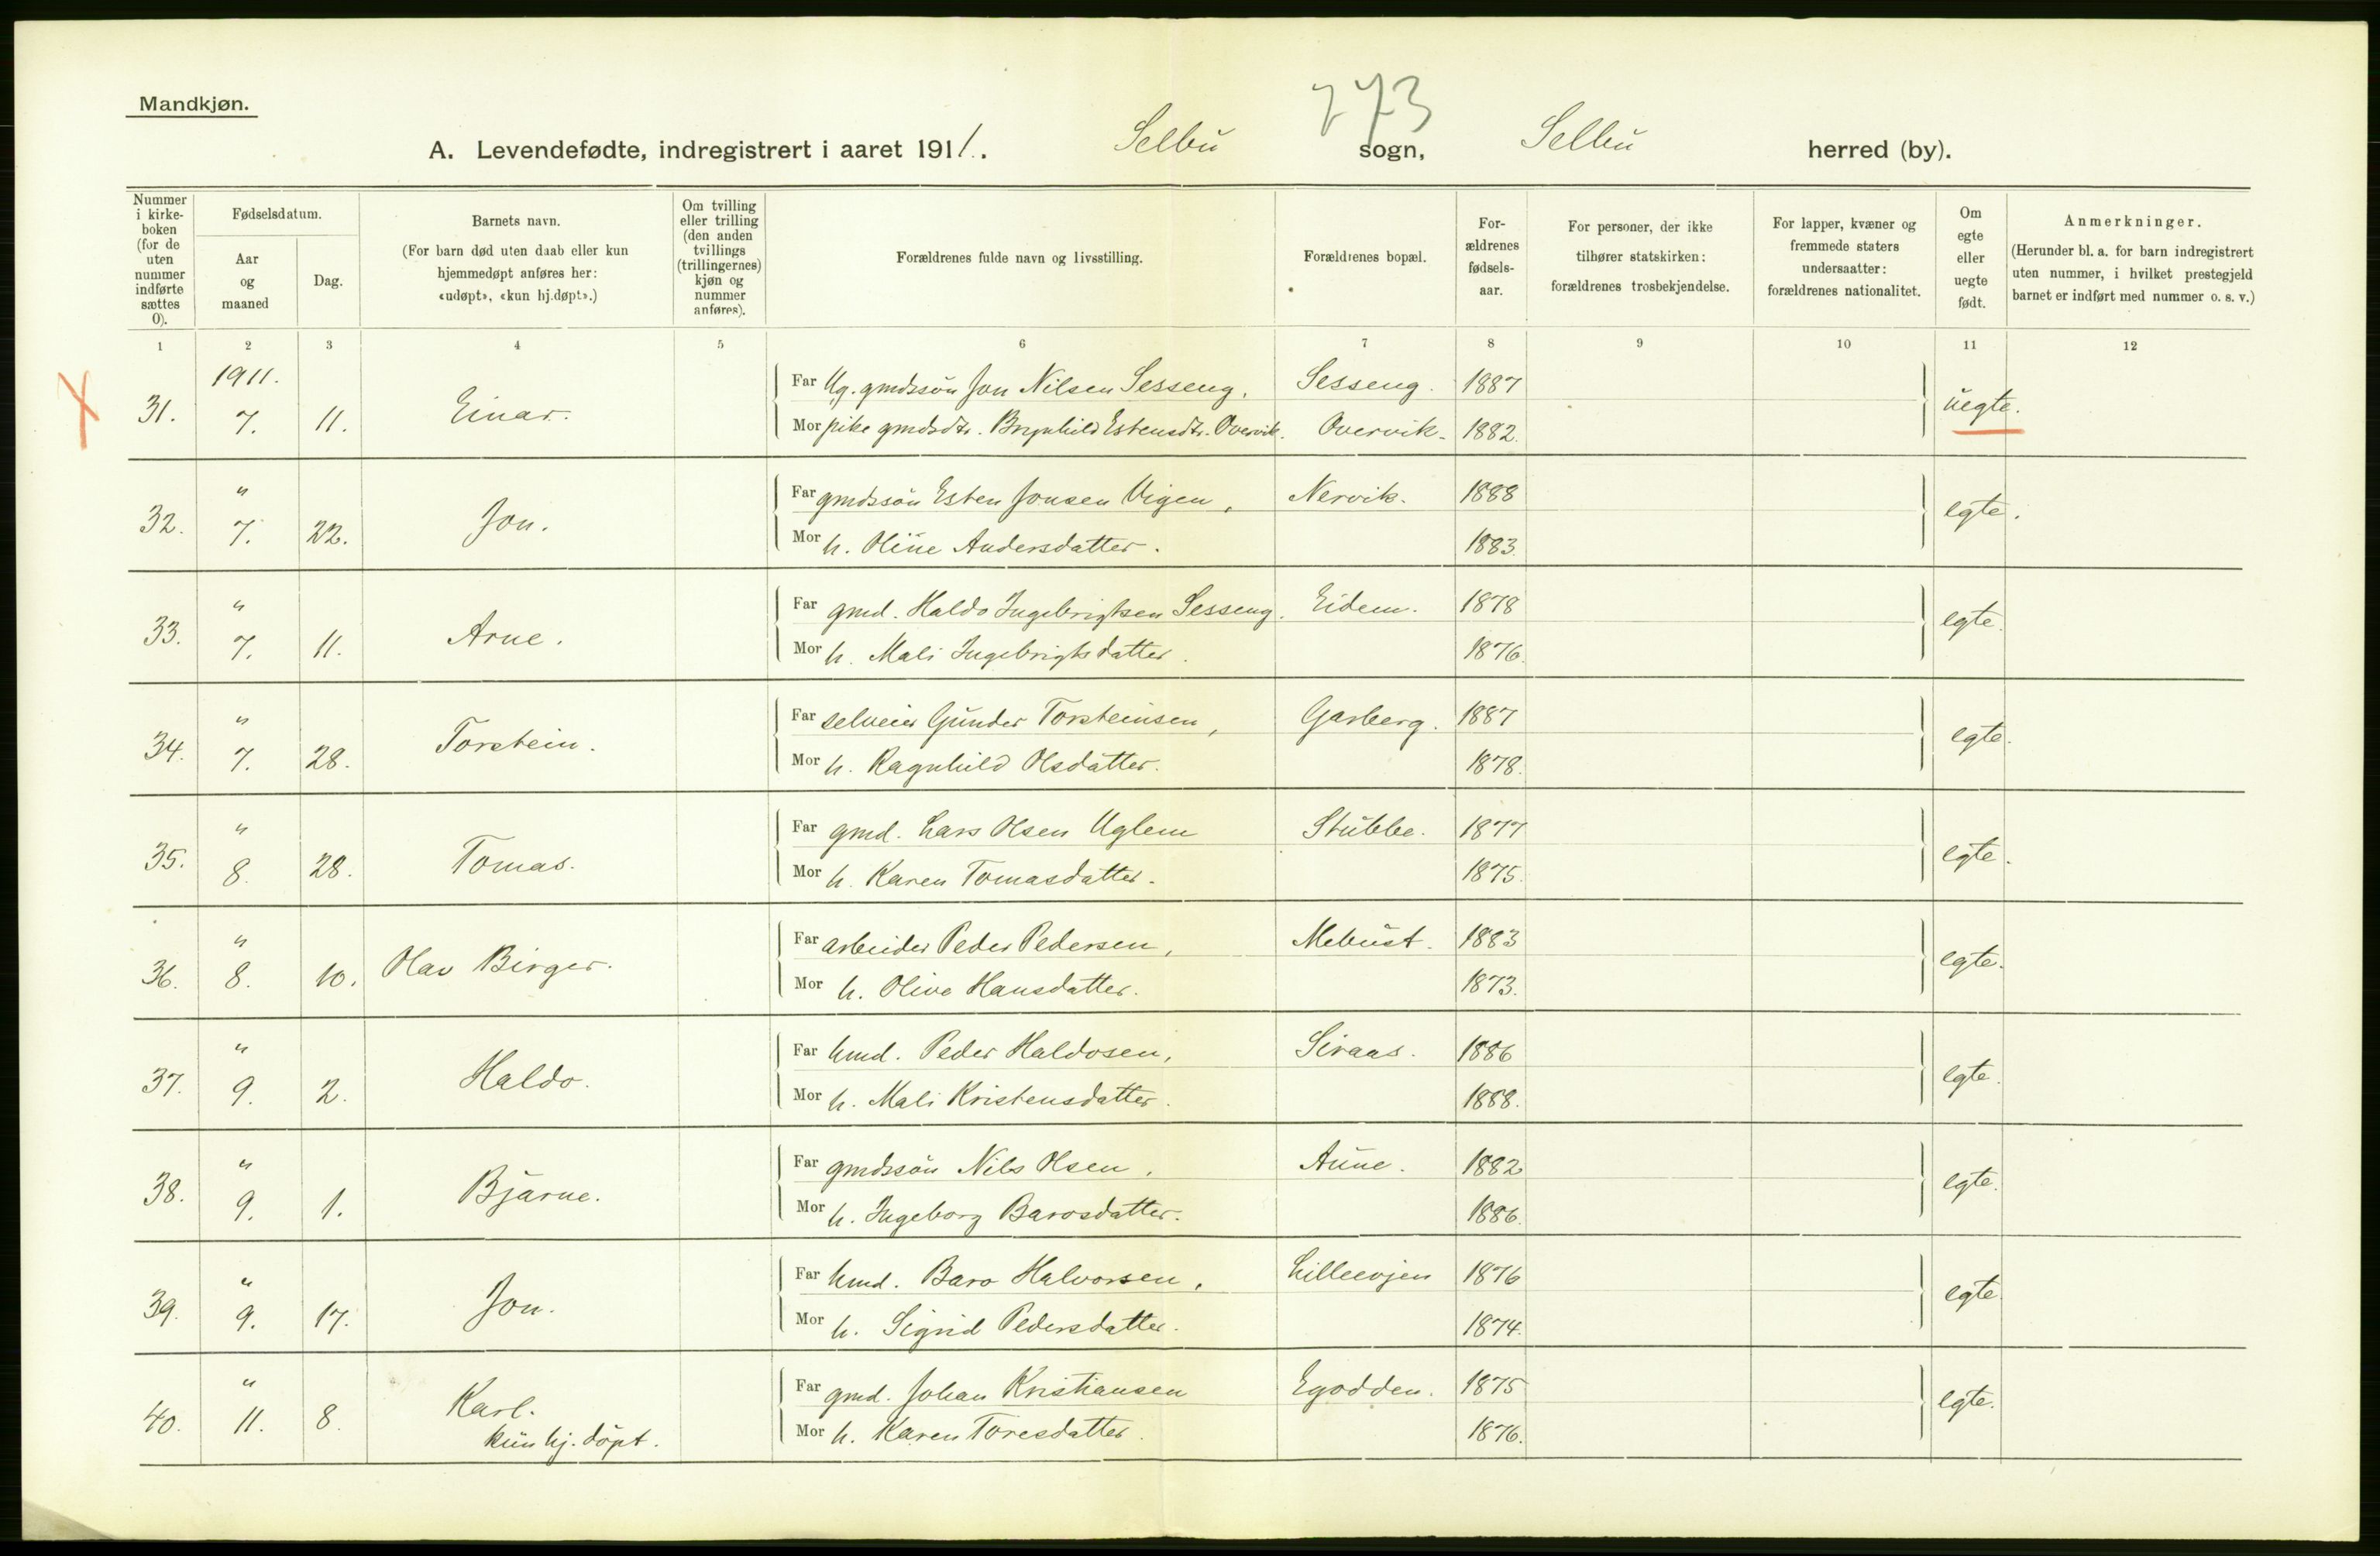 Mandkjøn.
273
A. Levendefødte, indregistrert i aaret 1911. Selbu sogn, Selbu herred (by).
Nummer i kirke-boken (for de uten nummer indførte sættes 0).
Fødselsdatum.
Aar og maaned
Dag.
Barnets navn.
(For barn død uten daab eller kun hjemmedøpt anføres her: «udøpt», «kun hj.døpt».)
Om tvilling eller trilling (den anden tvillings (trillingernes) kjøn og nummer anføres).
Forældrenes fulde navn og livsstilling.
Forældrenes bopæl.
For-ældrenes fødsels-aar.
For personer, der ikke tilhører statskirken: forældrenes trosbekjendelse.
For lapper, kvæner og fremmede staters undersaatter: forældrenes nationalitet.
Om egte eller uegte født.
Anmerkninger.
(Herunder bl. a. for barn indregistrert uten nummer, i hvilket prestegjeld barnet er indført med nummer o. s. v.)
1 2 3 4 5 6 7 8 9 10 11 12
1911.
Far Ug. gmdssön Jon Nilsen Sesseng, Sesseng. 1887
31. 7. 11. Einar. uegte.
Mor pike gmdsdtr. Brynhild Estensdtr. Overvik. Overvik. 1882.
" Far gmdssön Esten Jonsen Vigen, Nervik. 1888
32. 7. 22. Jon. egte.
Mor h. Oline Andersdatter. 1883.
" Far gmd. Haldo Ingebrigtsen Sesseng. Eidem. 1878
33. 7. 11. Arne. egte.
Mor h. Mali Ingebrigtsdatter. 1876.
" Far selveier Gunder Torsteinsen, Garberg. 1887
34. 7. 28. Torstein. egte.
Mor h. Ragnhild Olsdatter. 1878.
" Far gmd. Lars Olsen Uglem Stubbe. 1877
35. 8. 28. Tomas. egte.
Mor h. Karen Tomasdatter. 1875.
" Far arbeider Peder Pedersen, Mebust. 1883
36. 8. 10. Olav Birger. egte.
Mor h. Olive Hansdatter. 1873.
" Far hmd. Peder Haldosen, Siraas. 1886
37. 9. 2. Haldo. egte.
Mor h. Mali Kristensdatter. 1888.
" Far gmdssön Nils Olsen, Aune. 1882
38. 9. 1. Bjarne. egte.
Mor h. Ingeborg Barosdatter. 1886.
" Far hmd. Baro Halvorsen, Lilleevjen 1876
39. 9. 17. Jon. egte.
Mor h. Sigrid Pedersdatter. 1874.
" Far gmd. Johan Kristiansen Egodden. 1875
40. 11. 8. Karl. egte.
kun hj. döpt.
Mor h. Karen Toresdatter. 1876.